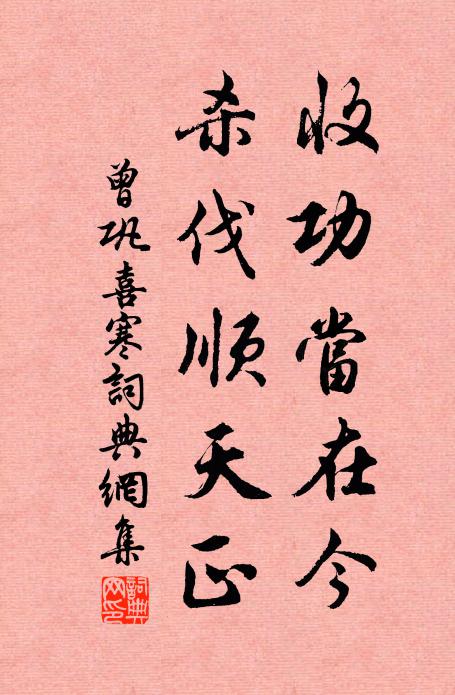 收功當在今
杀伐順天正
曾巩喜寒詞典網集
詞典網印